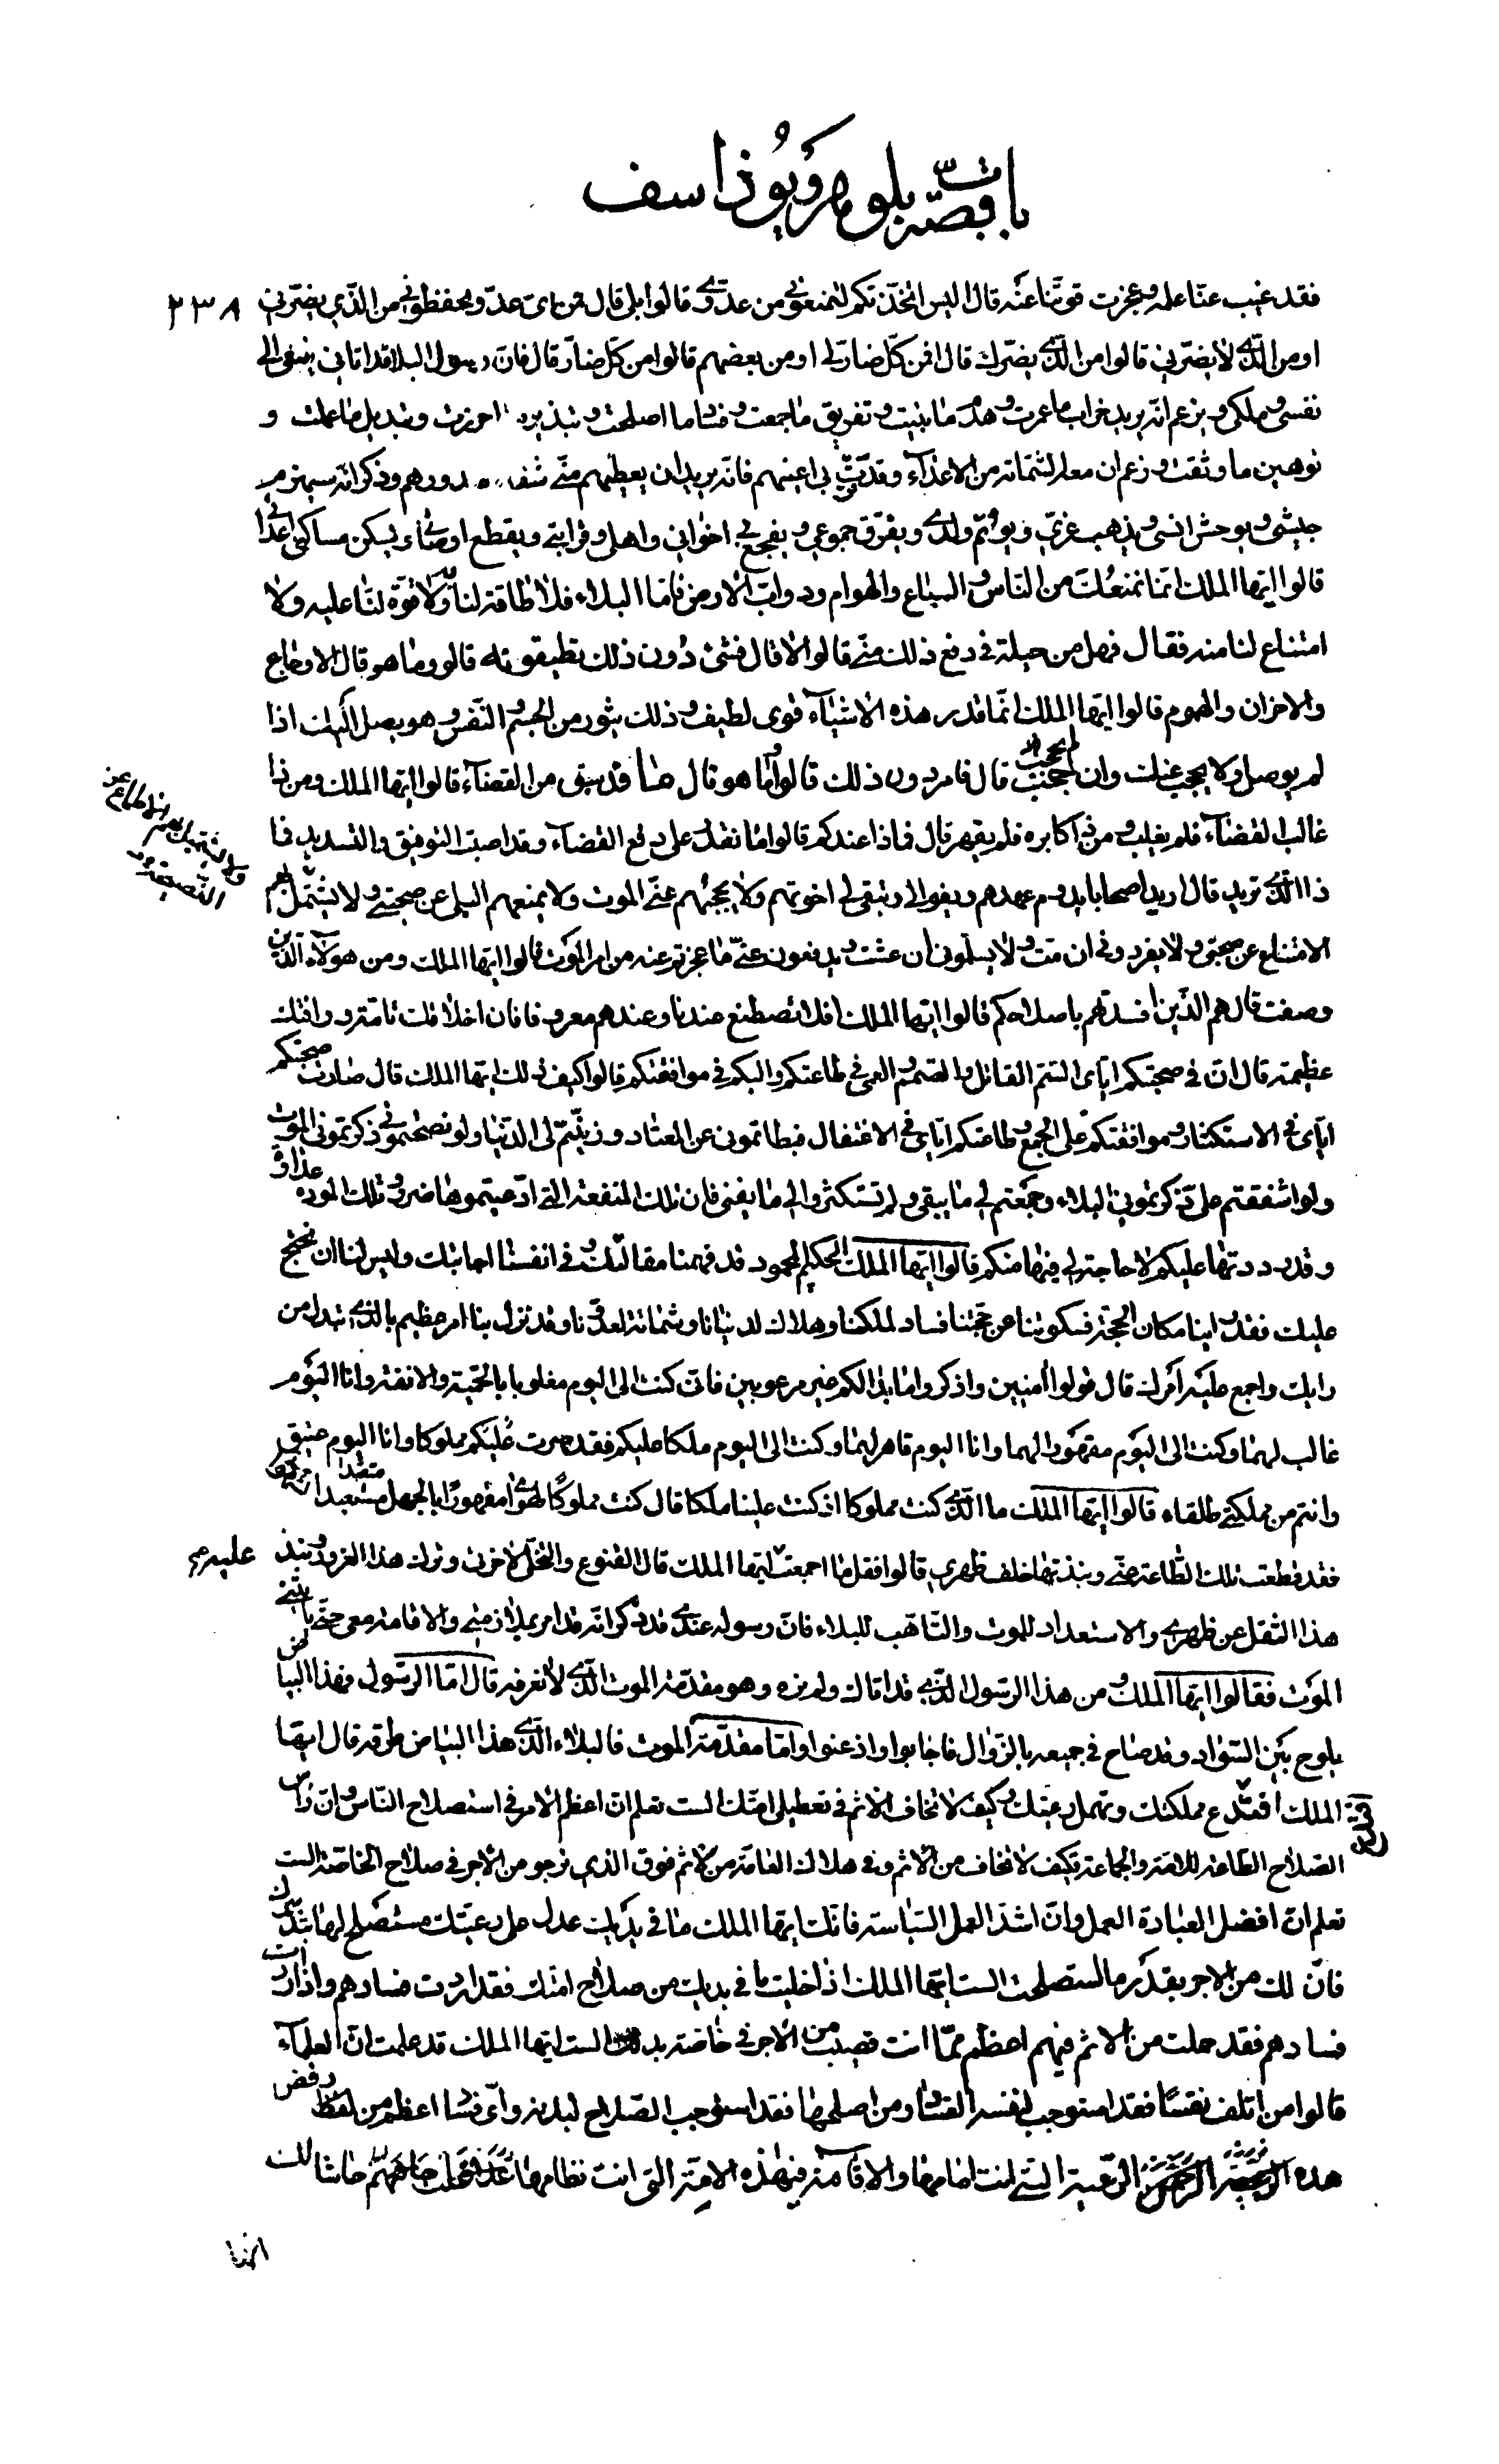 باقصّة بلوهر وَيُوذاسف
فقد غيب عنّا علمه وعجزت قوّتنا عنه قال اليس اتّخذتكم لتمنعوني من عدوّي قالوا بلى قال فمن اىّ عدوّ تحفظوني من الذّي يضرّني ٢٣٨
او من الّذي لا يضرّني قالوا من الّذي يضرّك قال افمن كلّ ضارّ لي او من بعضهم قالوا من كلّ ضارّ قال فانّ رسول البلا قد اتاني ينعى الى
نفسى وملكي ويزعم انّه يريد خراب ما عمرت وهدم ما بنيت وتفريق ما جمعت وفساد ما اصلحت وتبذير ما احرزت وتبديل ما عملت و
توهين ما وثقت وزعم ان معه الشماتة من الاعداء وقد قرّت بى اعينهم فانّه يريد ان يعطيهم منّي شفاء صدورهم وذكر انّه سيهزم
جيشى ويوحش انسى ويذهب عزّي ويؤتم ولدي ويفرّق جموعي ويفجع بي اخواني واهلى وقرابتي ويقطع اوصالي ويسكن مساكني اعدائي
قالوا ايّها الملك انّما نمنعك من النّاس والسباع والهوام ودوابّ الارض فامّا البلاء فلا طاقة لنا به ولا قوّة لنا عليه ولا
امتناع لنا منه فقال فهل من حيلة في دفع ذلك منّي قالوا لا قال فشئ دون ذلك تطيقونه قالوا وما هو قال الاوجاع
والاحزان والهموم قالوا ايّها الملك انّما قدر هذه الاشياء قوى لطيف وذلك يثور من الجسم والنّفس وهو يصل اليك اذا
لم يوصل ولا يحجب عنك وان حجبت لم يحجب قال فامر دون ذلك قالوا وما هو قال ما قد سبق من القضاء قالوا ايّها الملك ومن ذا
غالب القضاء فلم يغلب ومن ذا كابره فلم يقهر قال فما ذا عندكم قالوا ما نقدر على دفع القضاء وقد اصبت التوفيق والتسديد فما
ذا الّذي تريد قال اريد اصحابا يدوم عهدهم ويفوا لى وتبقى لي اخوتهم ولا يحجبهم عنّي الموت ولا يمنعهم البلى عن صحبتي ولا يشتمل بهم
الامتناع عن صحبتي ولا يفردوني ان متّ ولا يسلموني ان عشت ويدفعون عنّي ما عجزتم عنه من امر الموت قالوا ايّها الملك ومن هؤلاء الّذين
وصفت قال هم الّذين افسدتهم باصلاحكم قالوا ايّها الملك افلا تصطنع عندنا وعندهم معروفا فان اخلاقك تامّة ورافتك
عظيمة قال انّ في صحبتكم ايّاى السّمّ القاتل والصّمم والعمى في طاعتكم والبكم في موافقتكم قالوا كيف ذلك ايّها الملك قال صارت صحبتكم
ايّاى في الاستكثار وموافقتكم على الجمع وطاعتكم ايّاى في الاغتفال فبطاتموني عن المعاد وزيّنتم لى الدّنيا ولو نصحتموني ذكرتموني الموت
ولو اشفقتم علىّ ذكرتموني البلاء وجمعتم لي ما يبقى ولم تستكثروا لي ما يفنى فان تلك المنفعة التى ادّعيتموها ضرر وتلك المودّة عداوة
وقد رددتها عليكم لا حاجة لي فيها منكم قالوا ايّها الملك الحكيم المحمود قد فهمنا مقالتك وفي انفسنا اجابتك وليس لنا ان نحتج
عليك فقد راينا مكان الحجّة فسكوتنا عن حجّتنا فساد لملكنا وهلاك لدنيانا وشماتة لعدوّنا وقد نزل بنا امر عظيم بالّذي تبدّل من
رايك واجمع عليه امرك قال قولوا امنين واذكروا ما بدا لكم غير مرعوبين فانّى كنت الى اليوم مغلوبا بالحميّة والانفة وانا اليوم
غالب لهما وكنت الى اليوم مقهورا لهما وانا اليوم قاهر لهما وكنت الى اليوم ملكا عليكم فقد صرت عليكم مملوكا وانا اليوم عتيق
وانتم من مملكتي طلقاء قالوا ايّها الملك ما الّذي كنت مملوكا اذ كنت علينا ملكا قال كنت مملوكًا لهواي مقهورًا بالجهل مستعبدا
فقد قطعت تلك الطّاعة عنّي ونبذتها خلف ظهري قالوا فقل ما اجمعت عليه ايّها الملك قال القنوع والتخلّى لاخرتى وترك هذا الغرور ونبذ
هذا الثقل عن ظهري والاستعداد للموت والتّاهّب للبلاء فانّ رسوله عندي قد ذكر انّه قد امر بملازمتي والاقامة معى حتّى ياتيني
الموت فقالوا ايّها الملك ومن هذا الرسول الّذي قد اتاك ولم نره وهو مقدّمة الموت الّذي لا نعرفه قال امّا الرّسول فهذا البياض
يلوح بين السّواد وقد صاح في جميعه بالزّوال فاجابوا واذعنوا وامّا مقدّمة الموت فالبلاء الّذي هذا البياض طرقه قال ايّها
الملك افتدع مملكتك وتهمل رعيتك وكيف لا تخاف الاثم في تعطيل امّتك الست تعلم انّ اعظم الامر في استصلاح النّاس وانّ راس
الصّلاح الطّاعة للامّة والجماعة فكيف لا تخاف من الاثم وفى هلاك العامّة من الاثم فوق الذي ترجو من الاجر في صلاح الخاصّة الست
تعلم انّ افضل العبادة العمل وانّ اشدّ العمل السّياسة فانّك ايّها الملك ما في يديك عدل على رعيّتك مستصلح لها بتدبيرك
فانّ لك من الاجر بقدر ما استصلحت الست ايّها الملك اذا خلّيت ما في يديك من صلاح امّتك فقد اردت فسادهم واذا اردت
فسادهم فقد حملت من الاثم فيهم اعظم ممّا انت مصيب من الاجر في خاصّة بدنك الست ايّها الملك قد علمت انّ العلماء
قالوا من اتلف نفسًا فقد استوجب لنفسه الفساد ومن اصلحها فقد استوجب الصّلاح لبدنه واىّ فساد اعظم من رفض
هذه الرّعيّة التي انت امامها والاقامة في هذه الامّة التى انت نظامها حاشا لك
ايّها